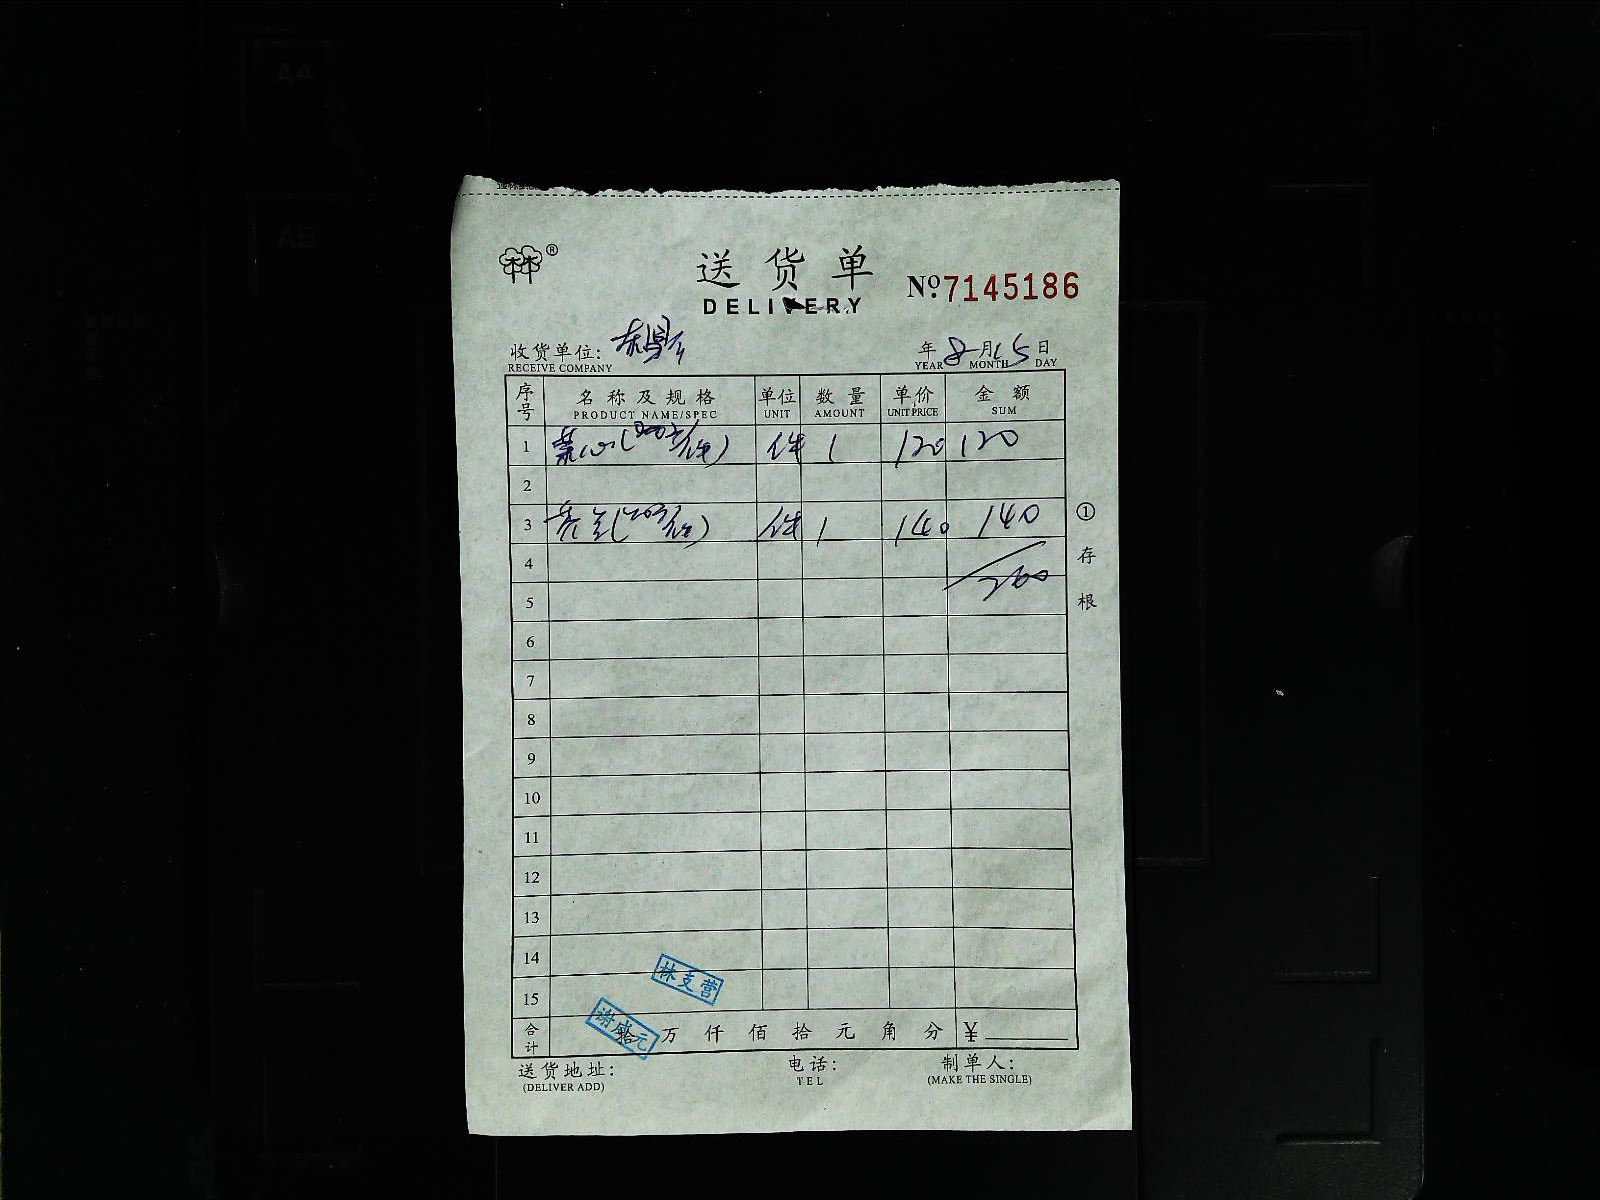 A4
A5
林®
送货单
DELIVERY
№7145186
收货单位:
RECEIVE COMPANY
年 8 月 15 日
YEAR MONTH DAY
序号 名称及规格 单位 数量 单价 金额
PRODUCT NAME/SPEC UNIT AMOUNT UNIT PRICE SUM
1 件 1 120 120
2
3 件 1 140 140
4
260
5
6
7
8
9
10
11
12
13
14
15
林支营
合计 拾 万 仟 佰 拾 元 角 分 ¥
送货地址: 电话: 制单人:
(DELIVER ADD) TEL (MAKE THE SINGLE)
①存根